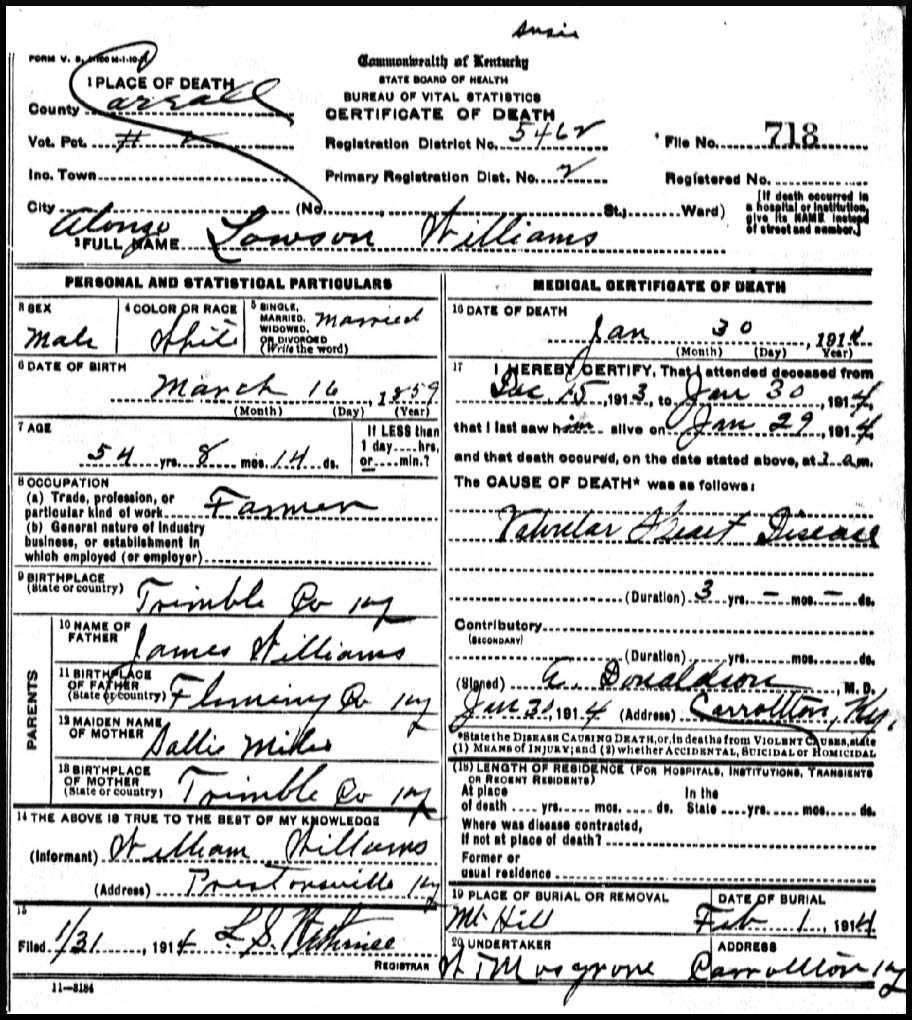 Susie
FORM V. S. 1-100 M-1-10-1
Commonwealth of Kentucky
STATE BOARD OF HEALTH
BUREAU OF VITAL STATISTICS
CERTIFICATE OF DEATH
1 PLACE OF DEATH
County Carroll
Vot. Pct. #
Registration District No. 5462
File No. 718
Inc. Town
Primary Registration Dist. No. 2
Registered No.
City (No. St.; Ward)
[If death occurred in a hospital or institution, give its NAME instead of street and number.]
Alonzo
2 FULL NAME Lawson Williams
PERSONAL AND STATISTICAL PARTICULARS
3 SEX
Male
4 COLOR OR RACE
White
5 SINGLE, MARRIED, WIDOWED, OR DIVORCED (Write the word) Married
6 DATE OF BIRTH
March 16, 1859
(Month) (Day) (Year)
7 AGE
54 yrs. 8 mos. 14 ds.
If LESS than 1 day....hrs, or....min.?
8 OCCUPATION
(a) Trade, profession, or particular kind of work Farmer
(b) General nature of Industry business, or establishment in which employed (or employer)
9 BIRTHPLACE (State or country) Trimble Co Ky
PARENTS
10 NAME OF FATHER James Williams
11 BIRTHPLACE OF FATHER (State or country) Fleming Co Ky
12 MAIDEN NAME OF MOTHER Sallie
13 BIRTHPLACE OF MOTHER (State or country) Trimble Co Ky
14 THE ABOVE IS TRUE TO THE BEST OF MY KNOWLEDGE
(Informant) William Williams
(Address) Prestonsville Ky
15
Filed 1/31, 1914 L. S.
REGISTRAR
11-3184
MEDICAL CERTIFICATE OF DEATH
16 DATE OF DEATH
Jan 30, 1914
(Month) (Day) Year)
17 I HEREBY CERTIFY, That I attended deceased from
Dec 15, 1913, to Jan 30, 1914,
that I last saw him alive on Jan 29, 1914,
and that death occured, on the date stated above, at 2 am.
The CAUSE OF DEATH* was as follows:
Valvular Heart Disease
(Duration) 3 yrs. - mos. - ds.
Contributory
(SECONDARY)
(Duration) yrs. mos. ds.
(Signed) A. Donaldson, M. D.
Jan 30, 1914 (Address) Carrollton, Ky.
*State the DISEASE CAUSING DEATH, or, in deaths from VIOLENT CAUSES, state
(1) MEANS OF INJURY; and (2) whether ACCIDENTAL, SUICIDAL or HOMICIDAL
(18) LENGTH OF RESIDENCE (FOR HOSPITALS, INSTITUTIONS, TRANSIENTS
OR RECENT RESIDENTS)
At place of death .... yrs. .... mos. .... ds. In the State .... yrs. .... mos. .... ds.
Where was disease contracted,
If not at place of death?
Former or
usual residence
19 PLACE OF BURIAL OR REMOVAL
Mt Hill
DATE OF BURIAL
Feb 1, 1914
20 UNDERTAKER
Mosgrove
ADDRESS
Carrollton Ky